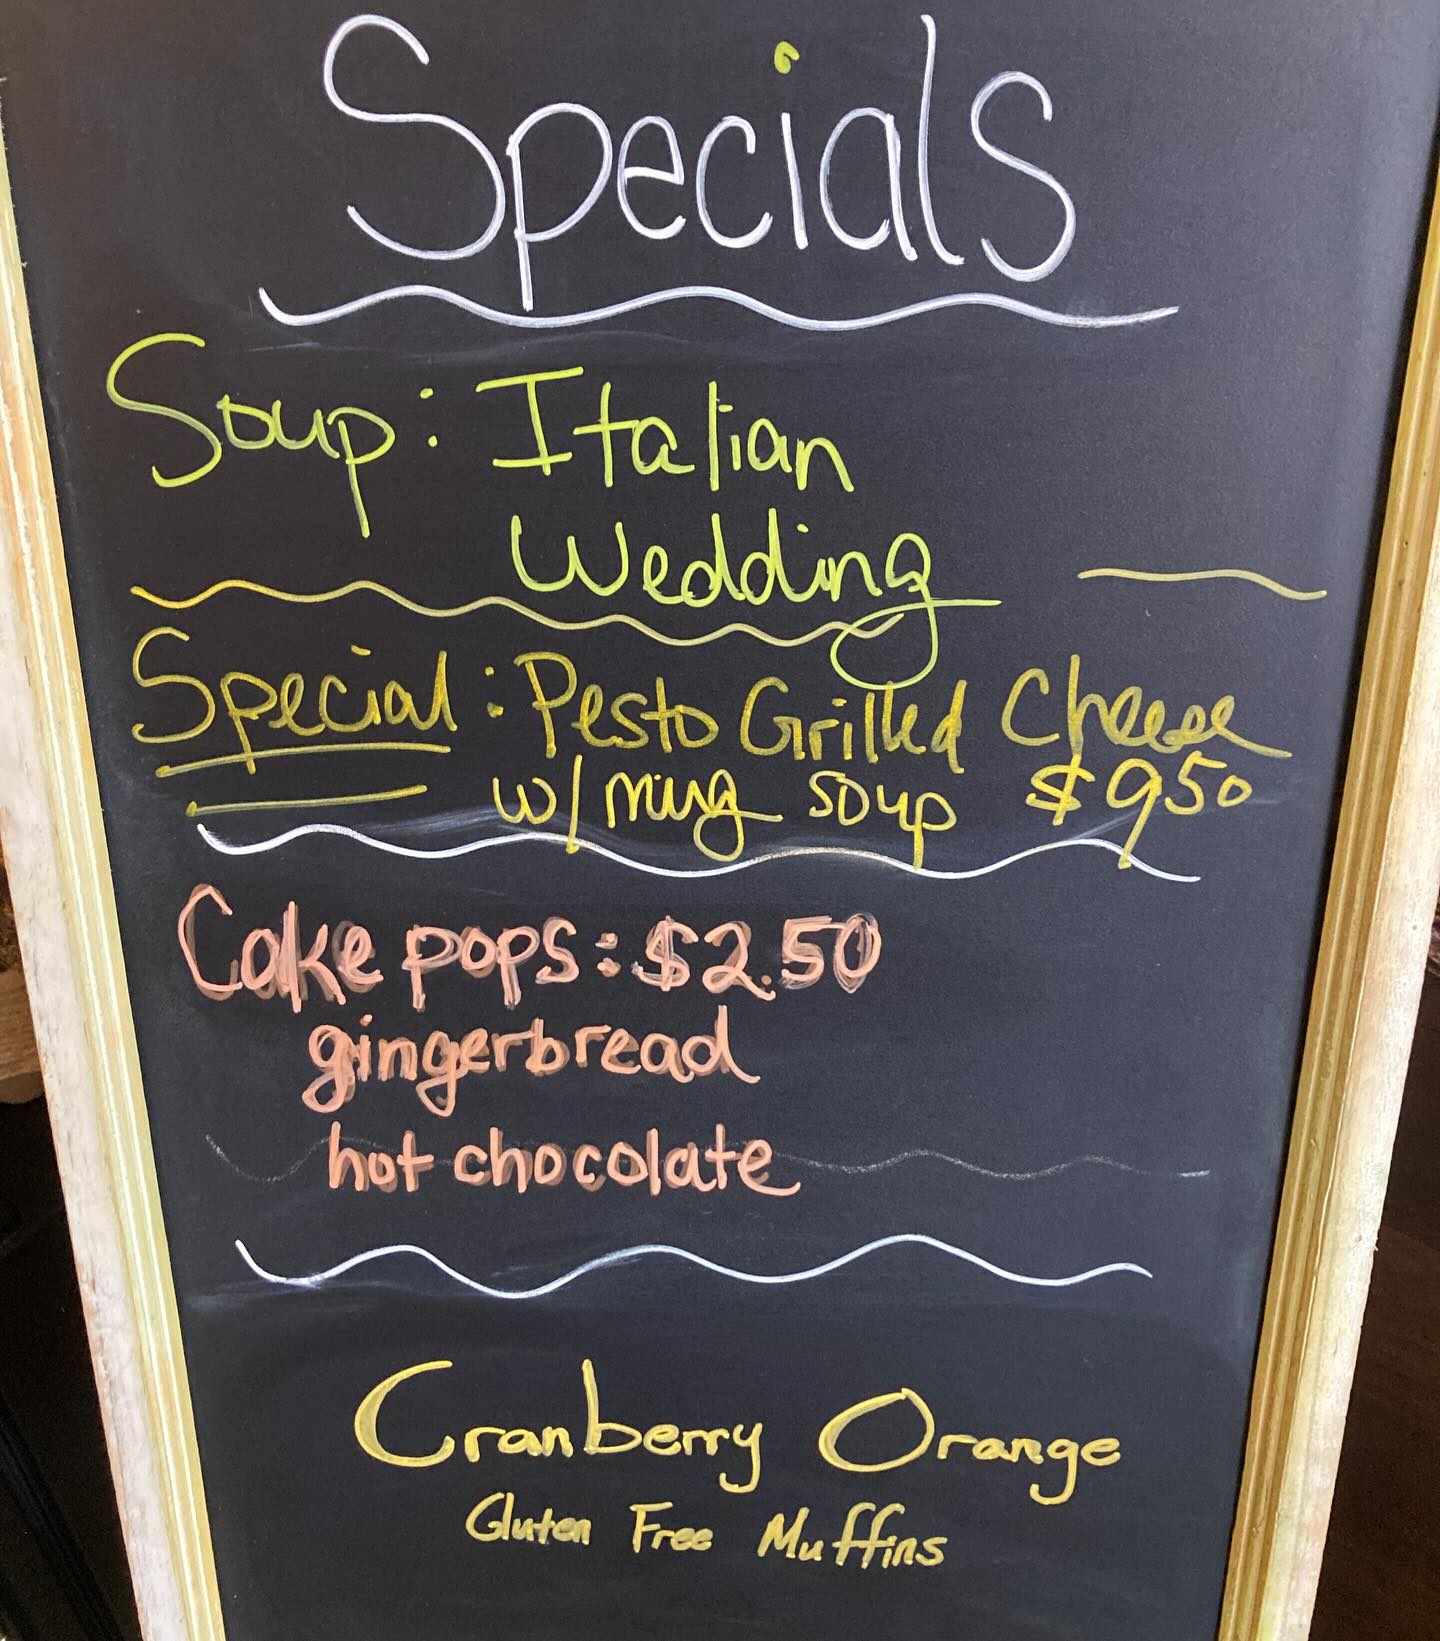 Specials
Soup: Italian
Wedding
Special: Pesto Grilled Cheese
w/ mug soup $9.50
Cake pops: $2.50
gingerbread
hot chocolate
Cranberry Orange
Gluten Free Muffins